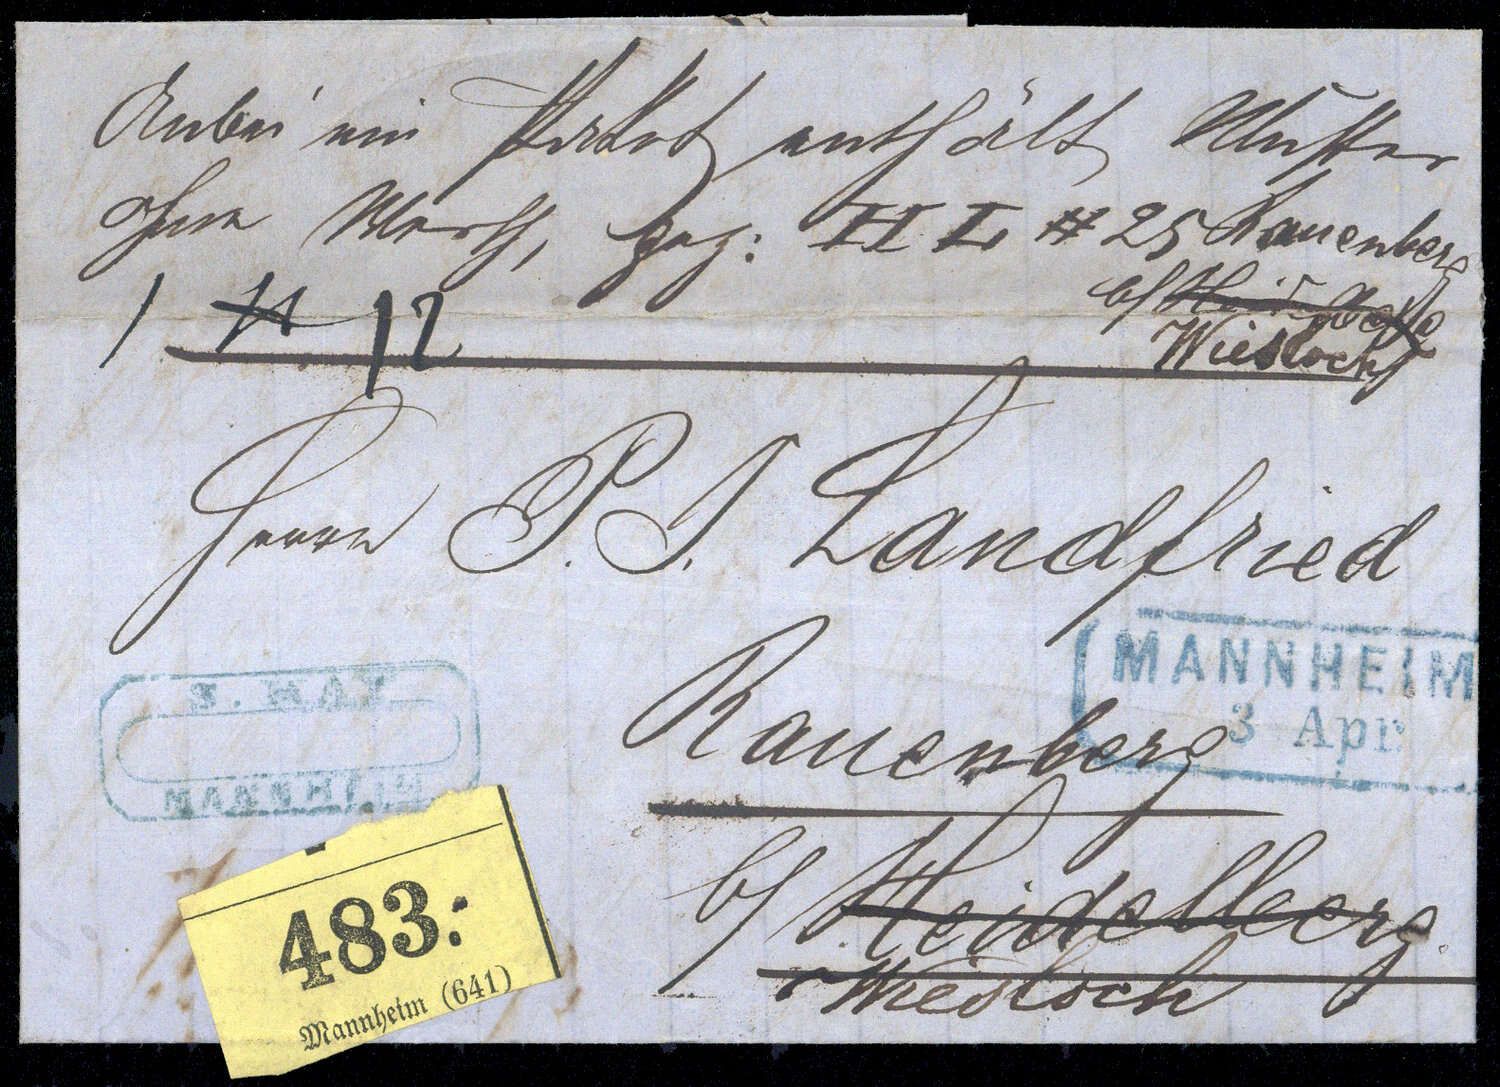 Anbei ein Paket enthält Muster
ohne Werth, gez: H L # 25 Rauenberg
b/ Heidelberg
Wiesloch
1 12
Herrn P. J. Landfried
Rauenberg
b/ Heidelberg
Wiesloch
S. MAY
MANNHEIM
MANNHEIM
3 Apr
483.
Mannheim (641)